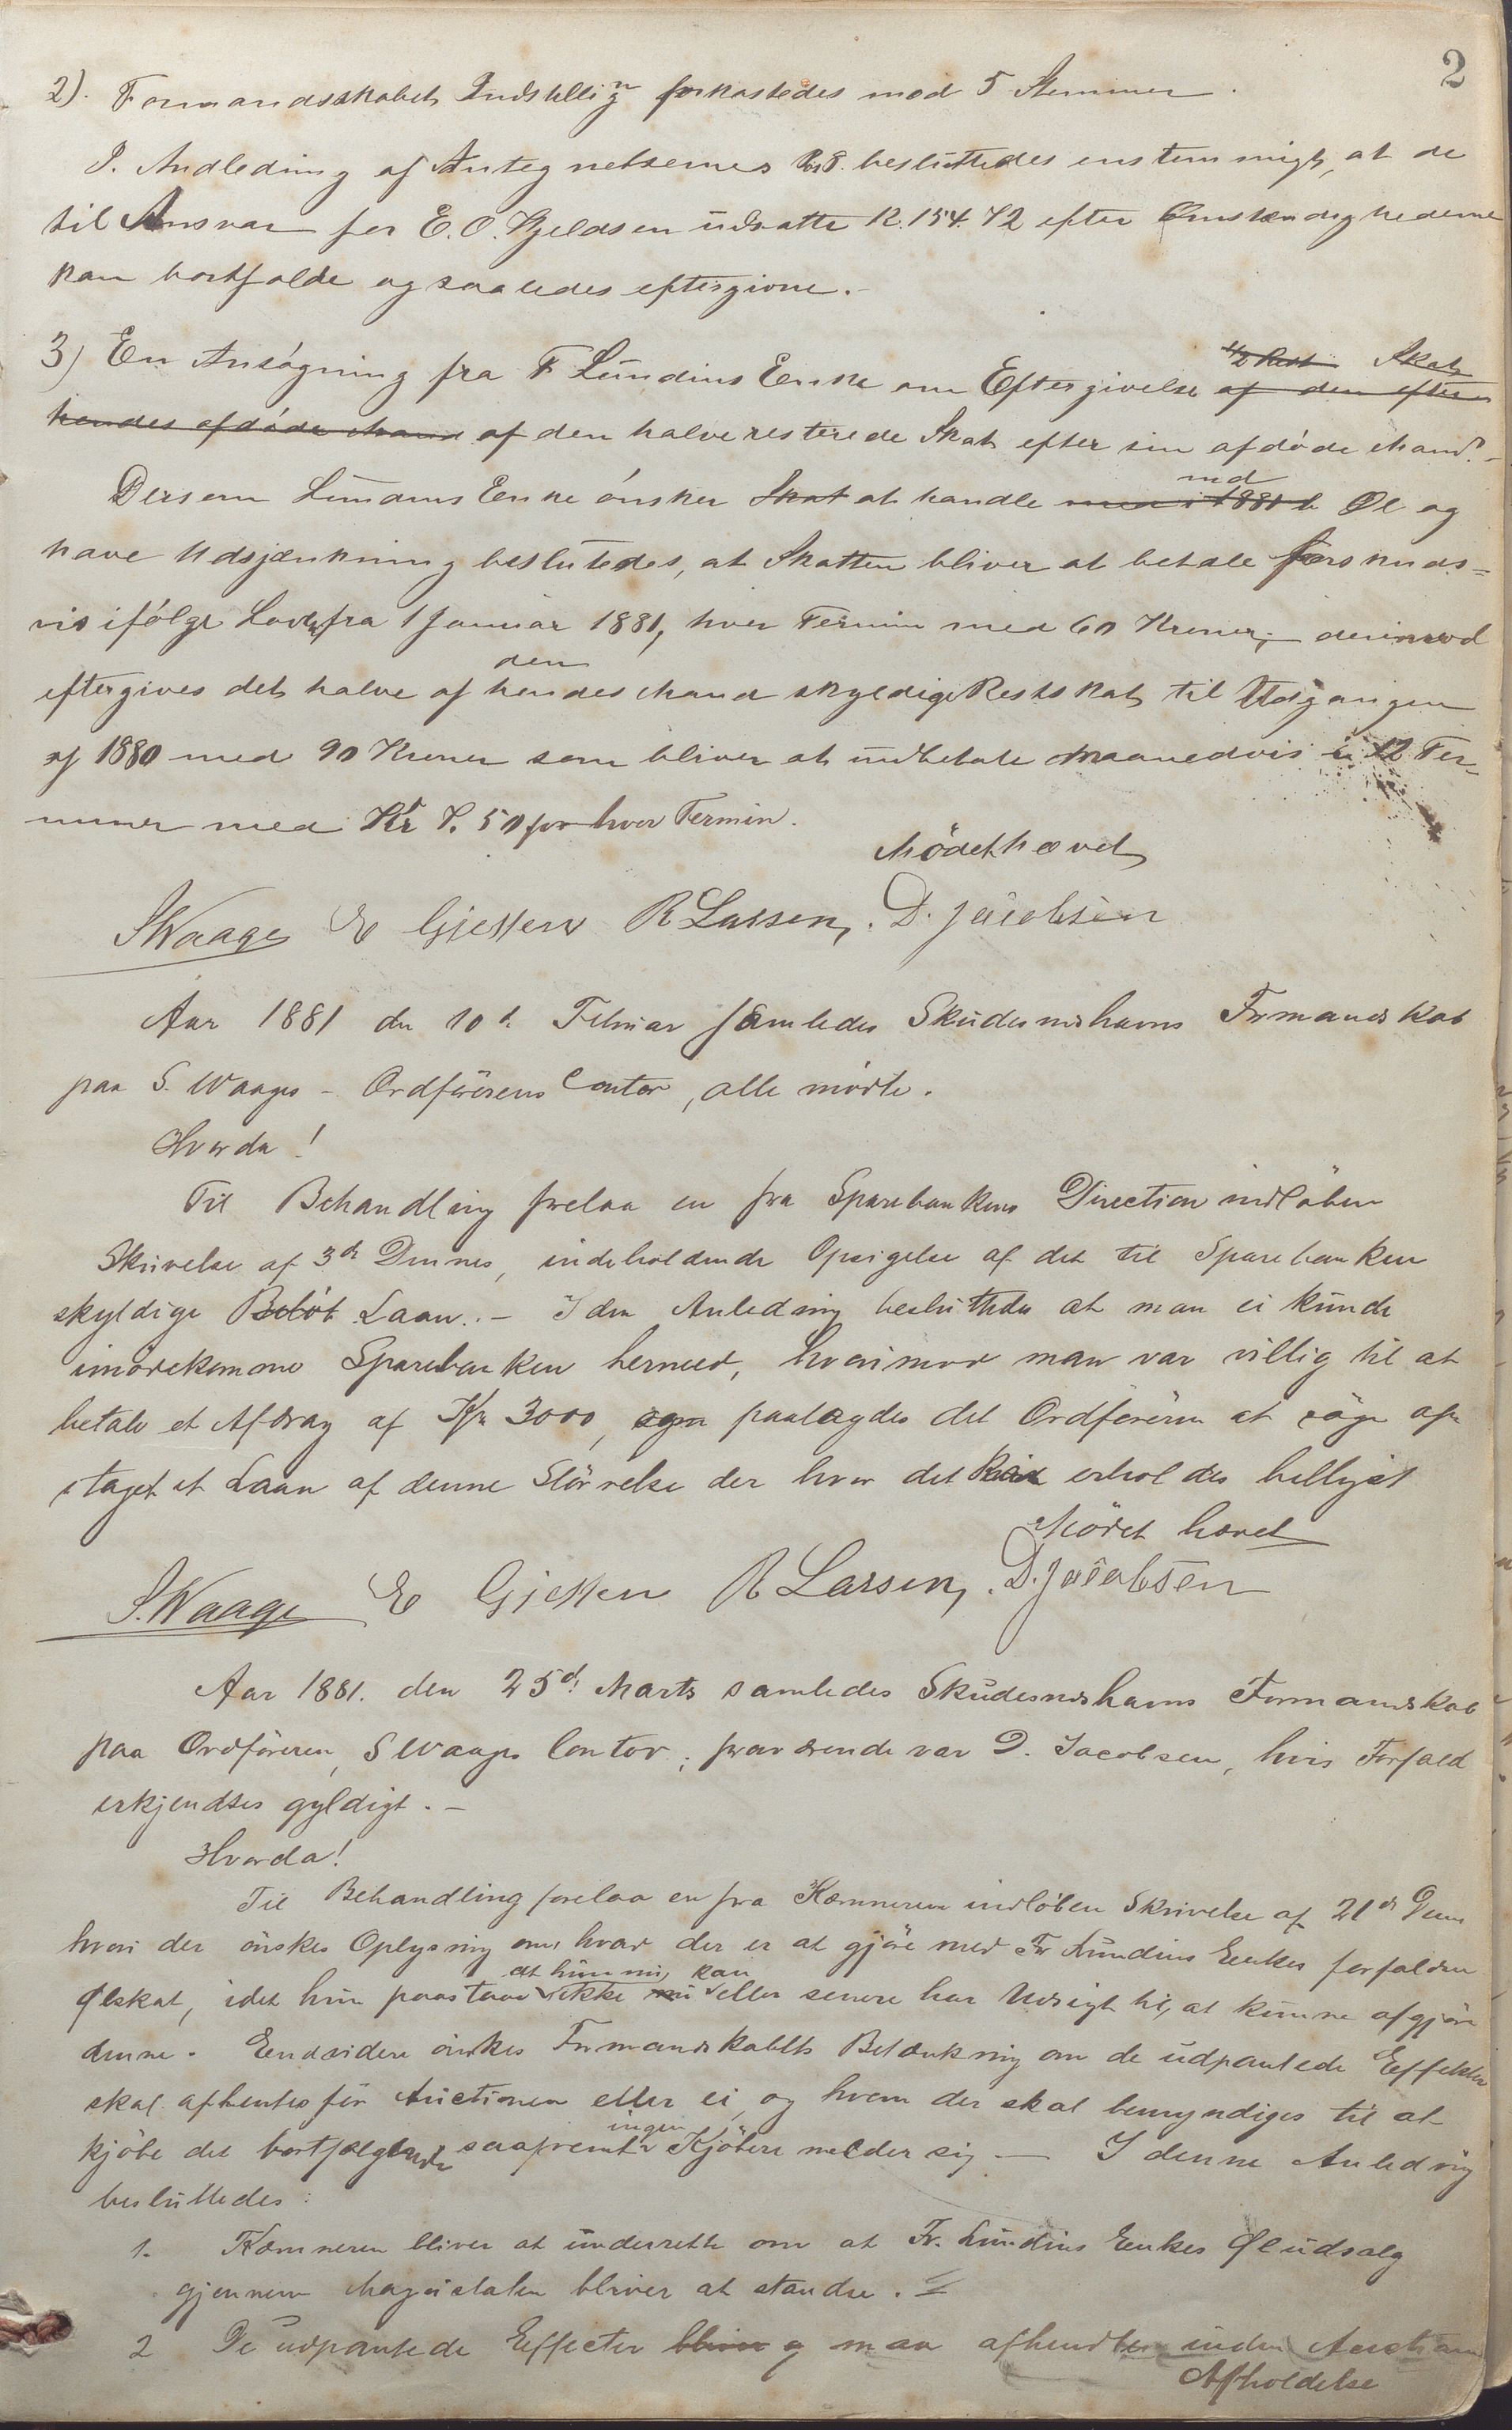 2
2). Formandsskabets Indstilling forkastedes mod 5 Stemmer.
I Andledning af Antegnelsernes Pos 8. besluttedes enstemmigt, at de
til Ansvar for E. O. Kjeldsen udsatte K. 154. 72 efter Omstændighederne
kan bortfalde og saaledes eftergivne. -
3) En Ansøgning fra F Lundins Enke om Eftergivelse af den efter
hendes afdøde Mand af den halve resterede Skat efter sin afdøde Mand. -
Dersom Lundins Enke ønsker Skat at handle med Øl og
have Udsjænkning beslutedes, at Skatten bliver at betale forskuds=
vis ifølge Loven fra 1 Januar 1881, hver Termin med 60 Kroner; - derimod
eftergives det halve af den hendes Mand skyldige Restskat til Udgangen
af 1880 med 90 Kroner som bliver at indbetale Maanedvis i 12 Ter-
miner med Kr 7. 50 for hver Termin.
Mödet hævet
S Waage E Gjessen R Larsen, D. Jacobsen
Aar 1881 den 10de Februar samledes Skudesneshavns Formandskab
paa S. Waages - Ordførerens Contor, alle mødte.
Hvorda!
Til Behandling forelaa en fra Sparebankens Direction indløben
Skrivelse af 3de Dennes, indeholdende Opsigelse af det til Sparebanken
skyldige Beløb Laan. - I den Anledning besluttedes at man ei kunde
imødekomme Sparebanken hermed, hvorimod man var villig til at
betale et Afdrag af Kr 3000, paalagdes det Ordføreren at søge op-
taget et Laan af denne Størrelse der hvor det kan erholdes billigst
Mödet hævet
S. Waage E Gjessen R Larsen, D. Jacobsen
Aar 1881. den 25d. Marts samledes Skudesneshavns Formandskab
paa Ordføreren, S Waages Contor; fraværende var D. Jacobsen, hvis Forfald
erkjendtes gyldigt. -
Hvorda!
Til Behandling forelaa en fra Kæmneren indløben Skrivelse af 21de Dens
hvori der ønskes Oplysning om, hvad der er at gjøre med Fr Lundins Enkes forfaldne
Ølskat, idet hun paastaar at hun nu ikke kan eller senere har Udsigt til, at kunne afgjøre
denne. Endvidere ønskes Formandskabets Betænkning om de udpantede Effekter
skal afhentes før Auctionen eller ei, og hvem der skal bemyndiges til at
kjøbe det bortsælgende saafremt ingen Kjøbere melder sig — I denne Anledning
besluttedes:
1. Kæmneren bliver at underrette om at Fr. Lundins Enkes Øludsalg
gjennem Magistraten bliver at standse.
2 De udpantede Effecter bliver og maa afhendtes inden Auctions
Afholdelse